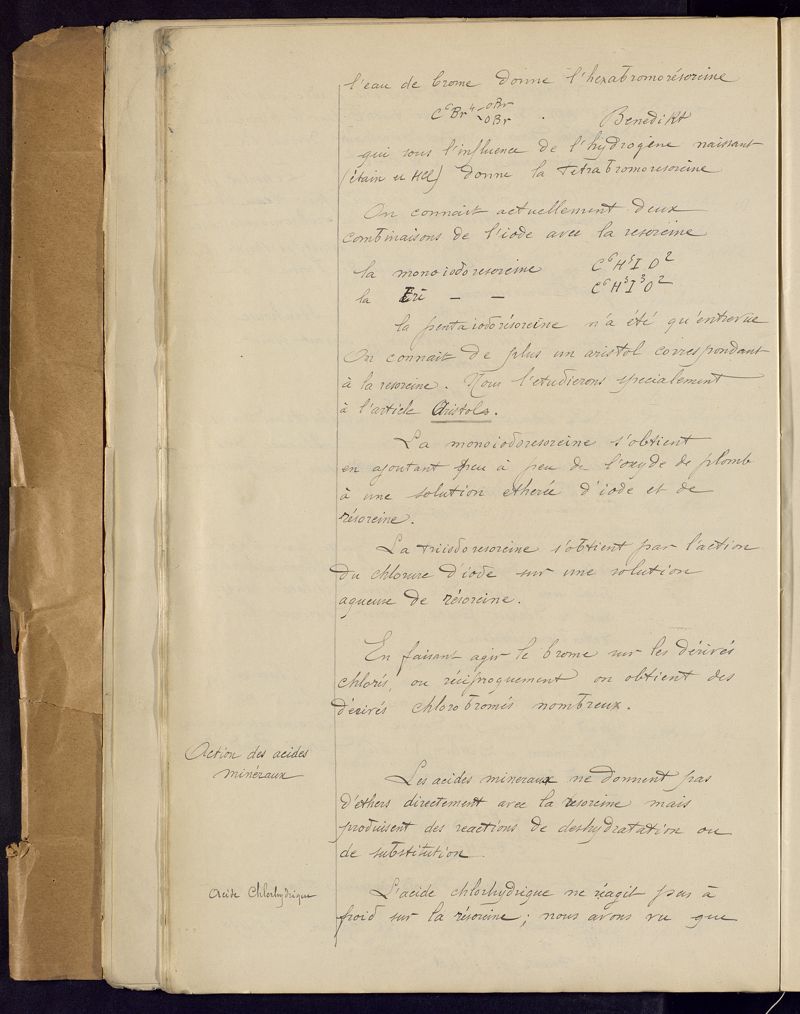 l'eau de brome donne l'hexabromorésorcine
C⁶Br⁴<OBr OBr . Benedikt
qui sous l'influence de l'hydrogène naissant
(étain et HCl) donne la Tetrabromoresorcine
On connait actuellement deux
combinaisons de l'iode avec la resorcine
la monoiodoresorcine C⁶H⁵I O²
la Tri — — C⁶H³I³O²
la pentaiodorésorcine n'a été qu'entrevue
On connait de plus un aristol correspondant
à la resorcine. Nous l'etudierons specialement
à l'article Aristols.
La monoiodoresorcine s'obtient
en ajoutant peu à peu de l'oxyde de plomb
à une solution etherée d'iode et de
résorcine.
La triiodoresorcine s'obtient par l'action
du chlorure d'iode sur une solution
aqueuse de résorcine.
En faisant agir le brome sur les dérivés
chlorés, ou réciproquement on obtient des
dérivés chlorobromés nombreux.
Action des acides
minéraux
Les acides mineraux ne donnent pas
d'ethers directement avec la resorcine mais
produisent des reactions de deshydratation ou
de substitution
Acide Chlorhydrique
L'acide chlorhydrique ne réagit pas à
froid sur la résorcine ; nous avons vu que